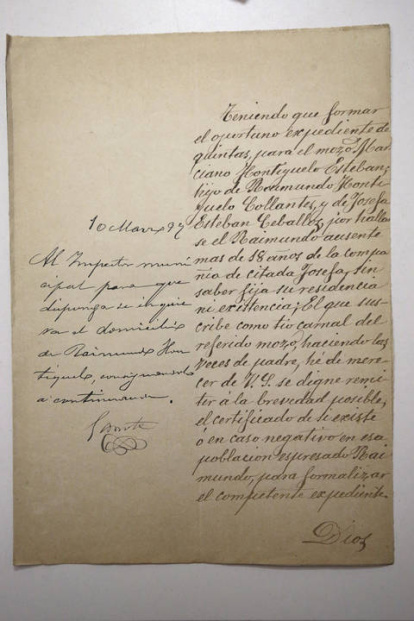 Teniendo que formar
el oportuno expediente de
quintas, para el mozo, Mar-
ciano Hontiyuelo Esteban;
hijo de Raimundo Honti-
yuelo Collantes, y de Josefa
Esteban Ceballos, por hallar-
se el Raimundo ausente
mas de 18 años de la compa-
ñia de citada Josefa, sin
saber fija su residencia
ni existencia; El que sus-
cribe como tio carnal del
referido mozo, haciendo las
veces de padre, hé de mere-
cer de V.S. se digne remi-
tir á la brevedad posible,
el certificado de si existe
ó en caso negativo en esa
poblacion espresado Rai-
mundo, para formalizar
el competente expediente.
Dios
10 Marzo 97
Al Inspector muni-
cipal para que
disponga se inquie-
ra el domicilio
de Raimundo Hon-
tiyuelo, consignandolo
a continuacion.